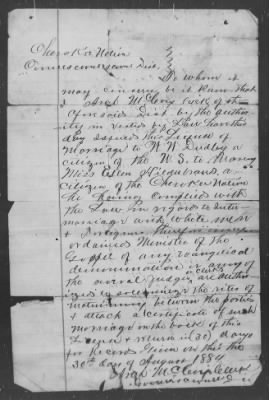 Cherokee Nation
Cooweescoowee Dist.
To whom it
may concern be it known that
I Arch McCoy Clerk of the
aforesaid Dist. by the author
ity in vested by Law have this
day issued this License of
Marriage to W W Dudley a
citizen of the U.S. to Marry
Miss Ellen Hildebrand, a
Citizen of the Cherokee Nation
He having Complied with
the Law in regard to inter
marriage with white men
& Foreigners therefore any
ordained Minister of the
Gospel of any evangelical
denomination or any of
the several Judges are author
ized to solemnize the rites of
matrimony between the parties
& attach a certificate of such
marriage on the back of this
License & return in (30) days
for Record. Given on this the
30th day of August 1884
Arch McCoy Clerk
Cooweescoowee Dist